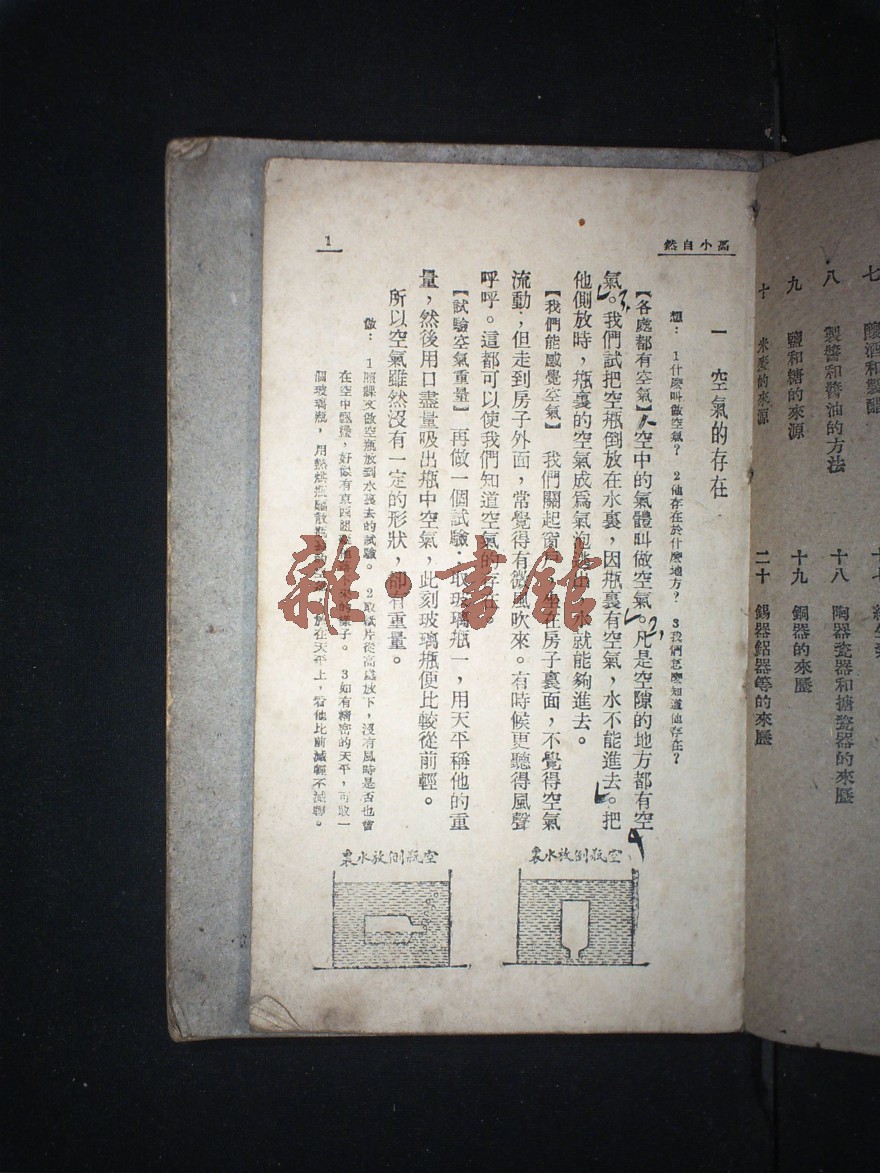 七　釀酒和製醋
八　製醬和醬油的方法
九　鹽和糖的來源
十　米麥的來源
十八　陶器瓷器和搪瓷器的來歷
十九　銅器的來歷
二十　錫器鋁器等的來歷
高小自然
一　空氣的存在
想：　1什麼叫做空氣？　2他存在於什麼地方？　3我們怎麼知道他存在？
【各處都有空氣】空中的氣體叫做空氣。凡是空隙的地方都有空
氣。我們試把空瓶倒放在水裏，因瓶裏有空氣，水不能進去。把
他側放時，瓶裏的空氣成爲氣泡逃出，水就能夠進去。
【我們能感覺空氣】　我們關起窗戶，坐在房子裏面，不覺得空氣
流動；但走到房子外面，常覺得有微風吹來。有時候更聽得風聲
呼呼。這都可以使我們知道空氣的存在。
【試驗空氣重量】　再做一個試驗：取玻璃瓶一，用天平稱他的重
量，然後用口盡量吸出瓶中空氣，此刻玻璃瓶便比較從前輕。
所以空氣雖然沒有一定的形狀，卻有重量。
做：　1照課文做空瓶放到水裏去的試驗。　2取紙片從高處放下，沒有風時是否也會
在空中飄揚，好似有東西阻
樣子。　3如有精密的天平，可取一
個玻璃瓶，用熱烘瓶驅散瓶
放在天平上，看他比前減輕不減輕。
1
空瓶倒放水裏
空瓶側放水裏
雜·書館